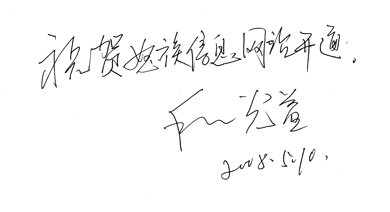 祝贺怒族信息网站开通.
光益
2008.5.10.